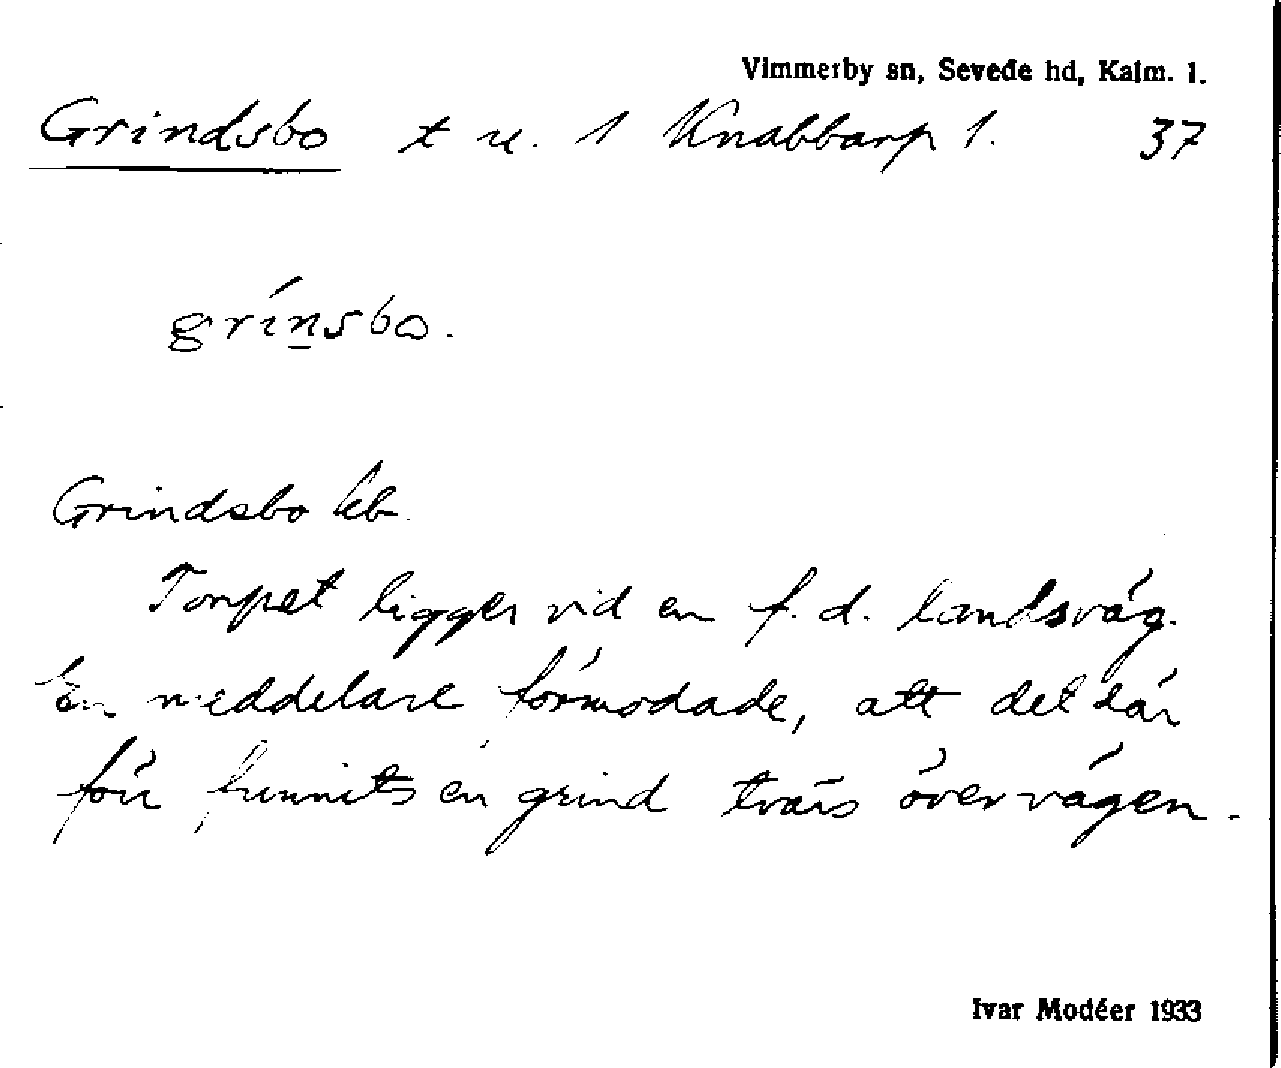 Vimmerby sn, Sevede hd, Kalm. l.
Grindsbo t u. 1 Knabbarp 1. 37
grínsbo.
Grindsbo kb.
Torpet ligger vid en f.d. landsväg.
En meddelare förmodade, att det där
förr funnits en grind tvärs över vägen.
Ivar Modéer 1933